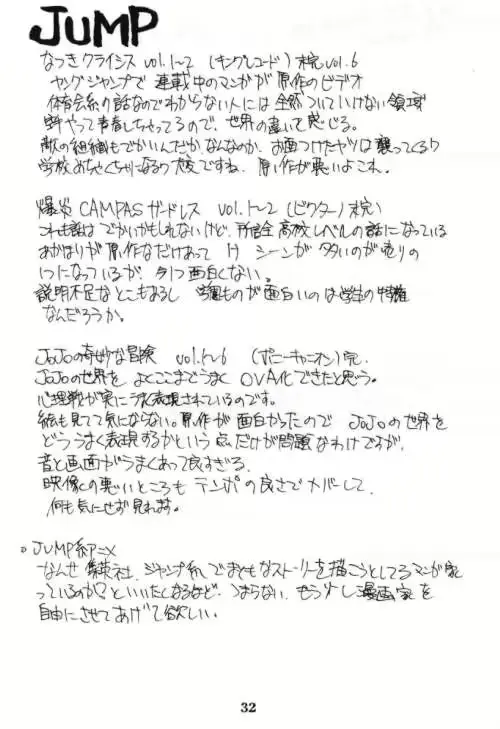 JUMP
なつきクライシス vol.1~2 (キングレコード) 未完 vol.6
ヤングジャンプで 連載中のマンガが 原作のビデオ
体育会系の話なのでわからない人には全然ついていけない領域
やって青春しちゃってるので、世界の違いて感じる。
敵の組織もでかいんだか、なんなのか、お面つけたヤツは襲ってくるワ
学校めちゃくちゃになるワ大変ですね、原作が悪いよこれ。
爆炎 CAMPAS ガードレス vol.1~2 (ビクター) 完
これも話は でかいかもしれないけど、所詮 高校レベルの話になっている
あかほりが 原作なだけあって H シーンが 多いのが売りの
1つになっているが、今1つ面白くない。
説明不足なとこもあるし 学園ものが面白いのは学生の特権
なんだろうか。
JOJOの奇妙な冒険 vol.1~6 (ポニーキャニオン) 完.
JOJOの世界を よくここまでうまく OVA化できたと思う。
心理戦が実にうまく表現されているのです。
絵も見てて気にならない。原作が 面白かったので JOJOの世界を
どううまく表現するかという 点だけが問題なわけですが、
音と画面がうまくあって良すぎる.
映像との悪いところも テンポの良さでカバーして、
何も気にせず見れます。
。JUMP系アニメ
なんせ 集英社. ジャンプ系 でまともなストーリーを描こうとしてるマンガ家
っているのか?といいたくなるほど、つまらない、もう少し漫画家を
自由にさせてあげて欲しい.
32